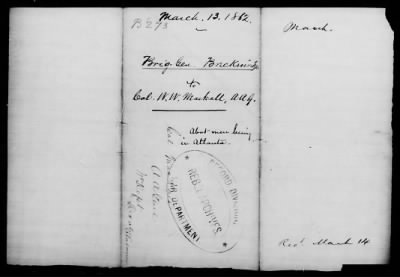 March. 13. 1862.
B 273
Brig Gen Breckinridge
to
Col. W. W. Mackall, A A G.
About men being
in Atlanta
RECORD DIVISION
REBEL ARCHIVES
WAR DEPARTMENT
March.
Recd March 14